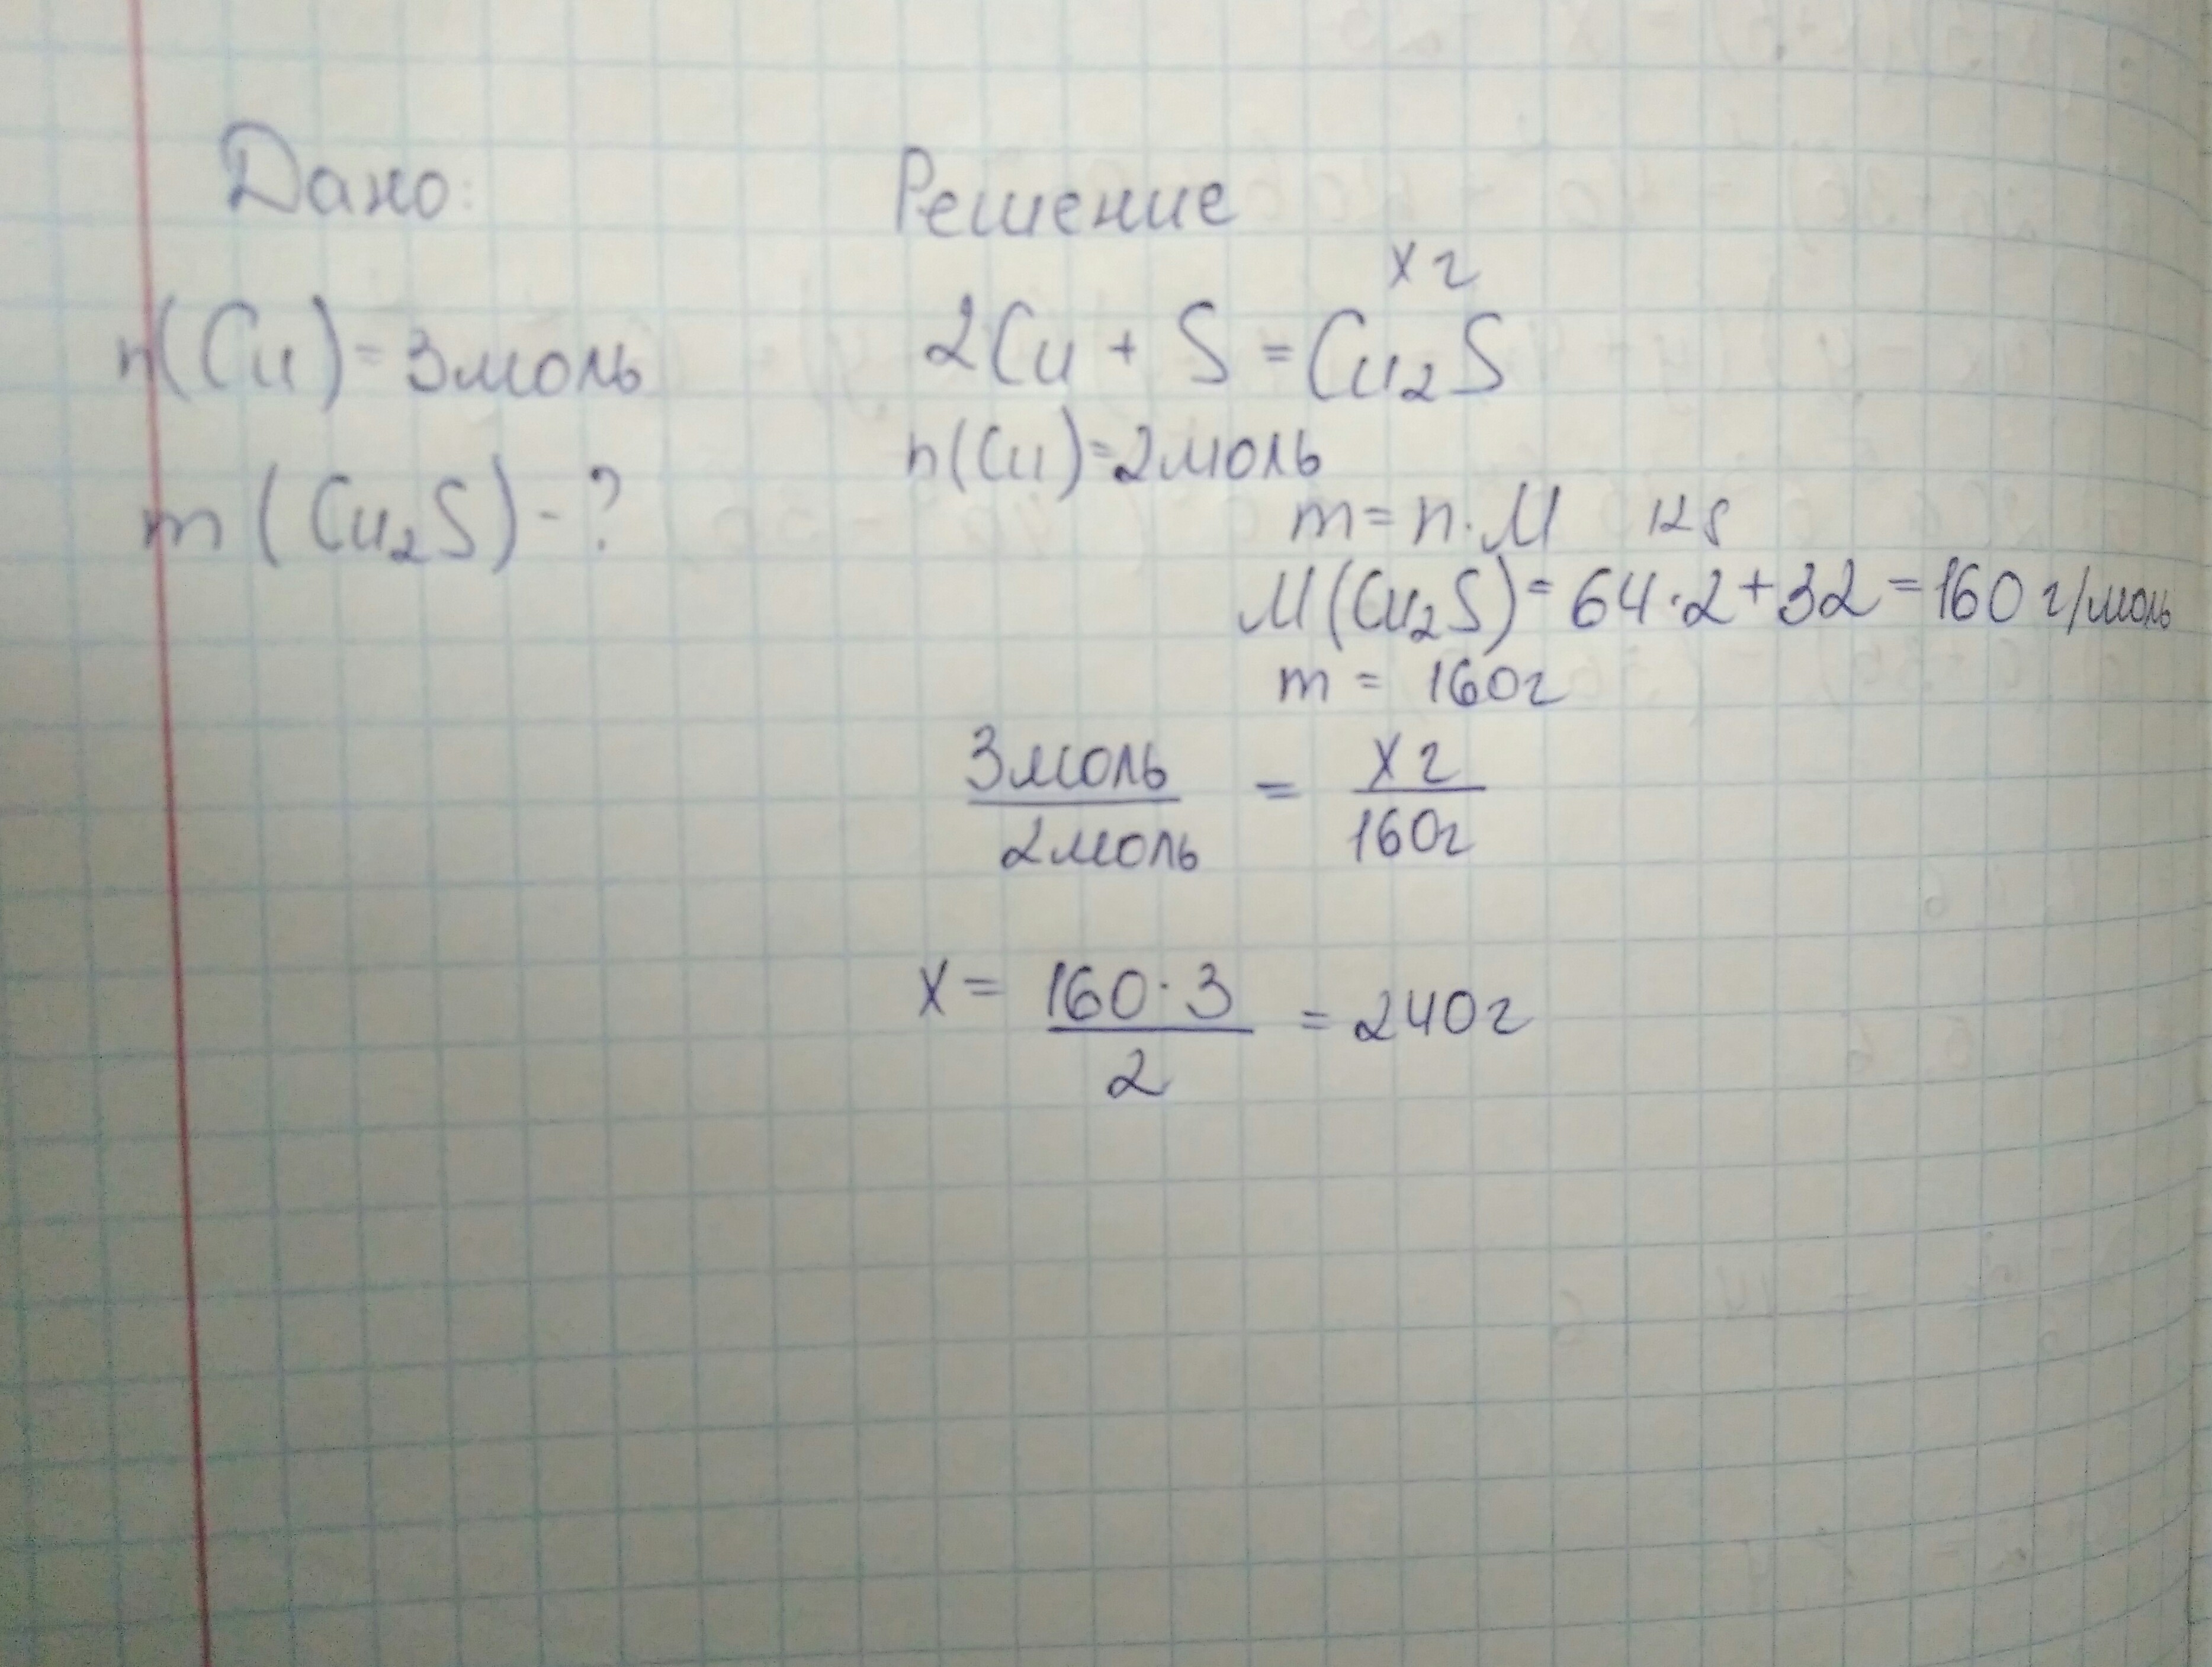 Дано:
n(Cu)=3моль
m(Cu₂S)-?
Решение
x г
2Cu + S = Cu₂S
n(Cu)=2моль
m=n·M 128
M(Cu₂S)=64·2+32=160 г/моль
m = 160г
3моль = x г
2моль 160г
x= 160·3 = 240г
2